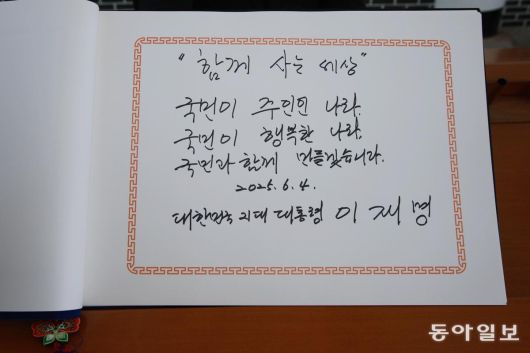 "함께 사는 세상"
국민이 주인인 나라,
국민이 행복한 나라,
국민과 함께 만들겠습니다.
2025. 6. 4.
대한민국 21대 대통령 이재명
동아일보